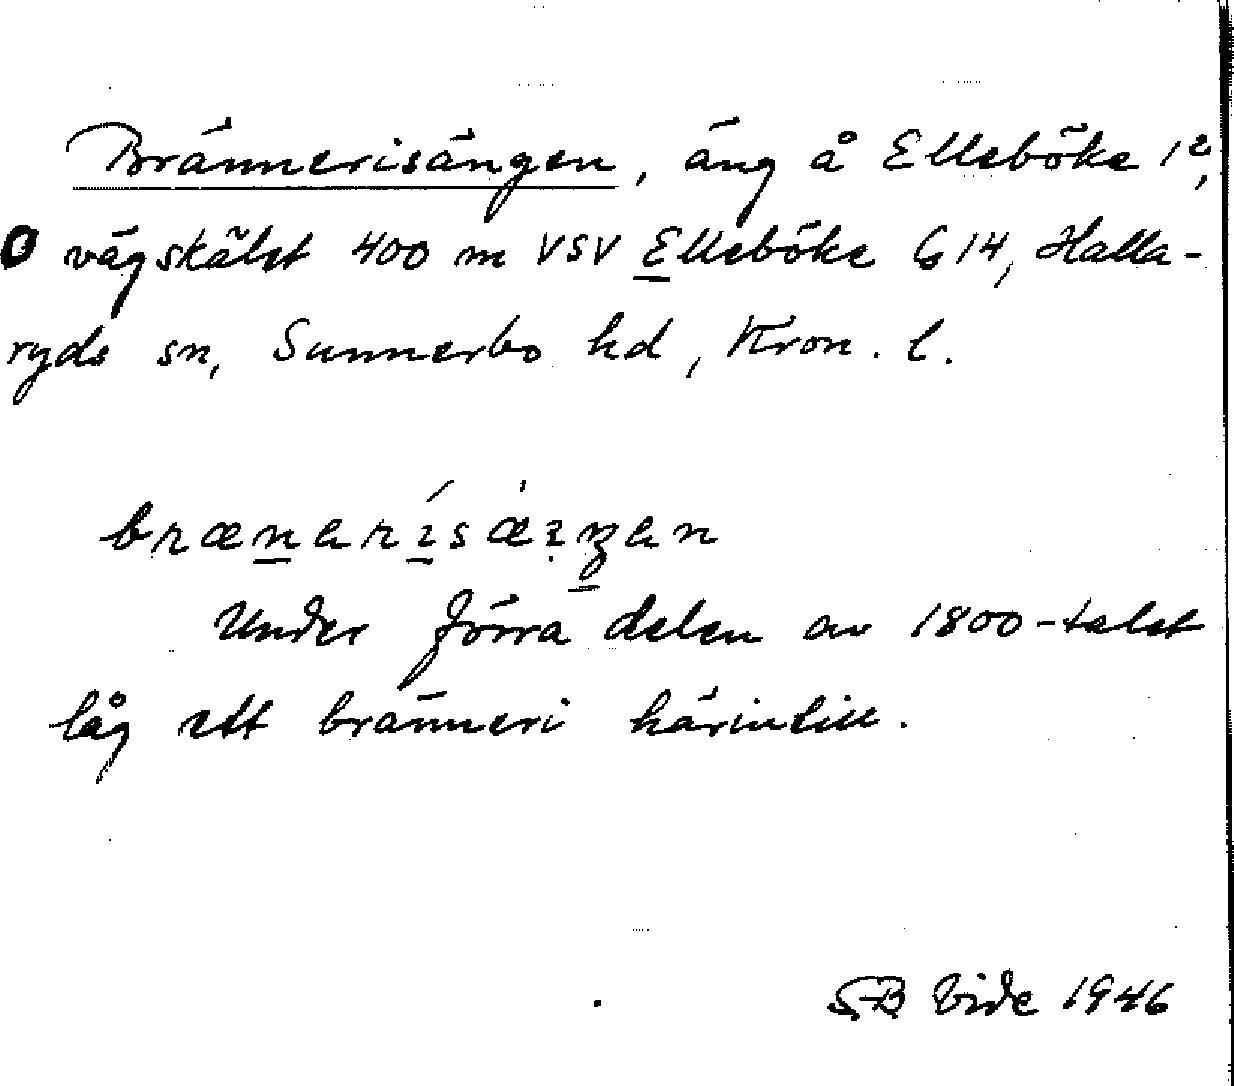 Brännerisängen, äng å Elleböke 1²,
O vägskälet 400 m VSV Elleböke G 14, Halla-
ryds sn, Sunnerbo hd, Kron. l.
Under förra delen av 1800-talet
låg ett bränneri härintill.
SB Vide 1946